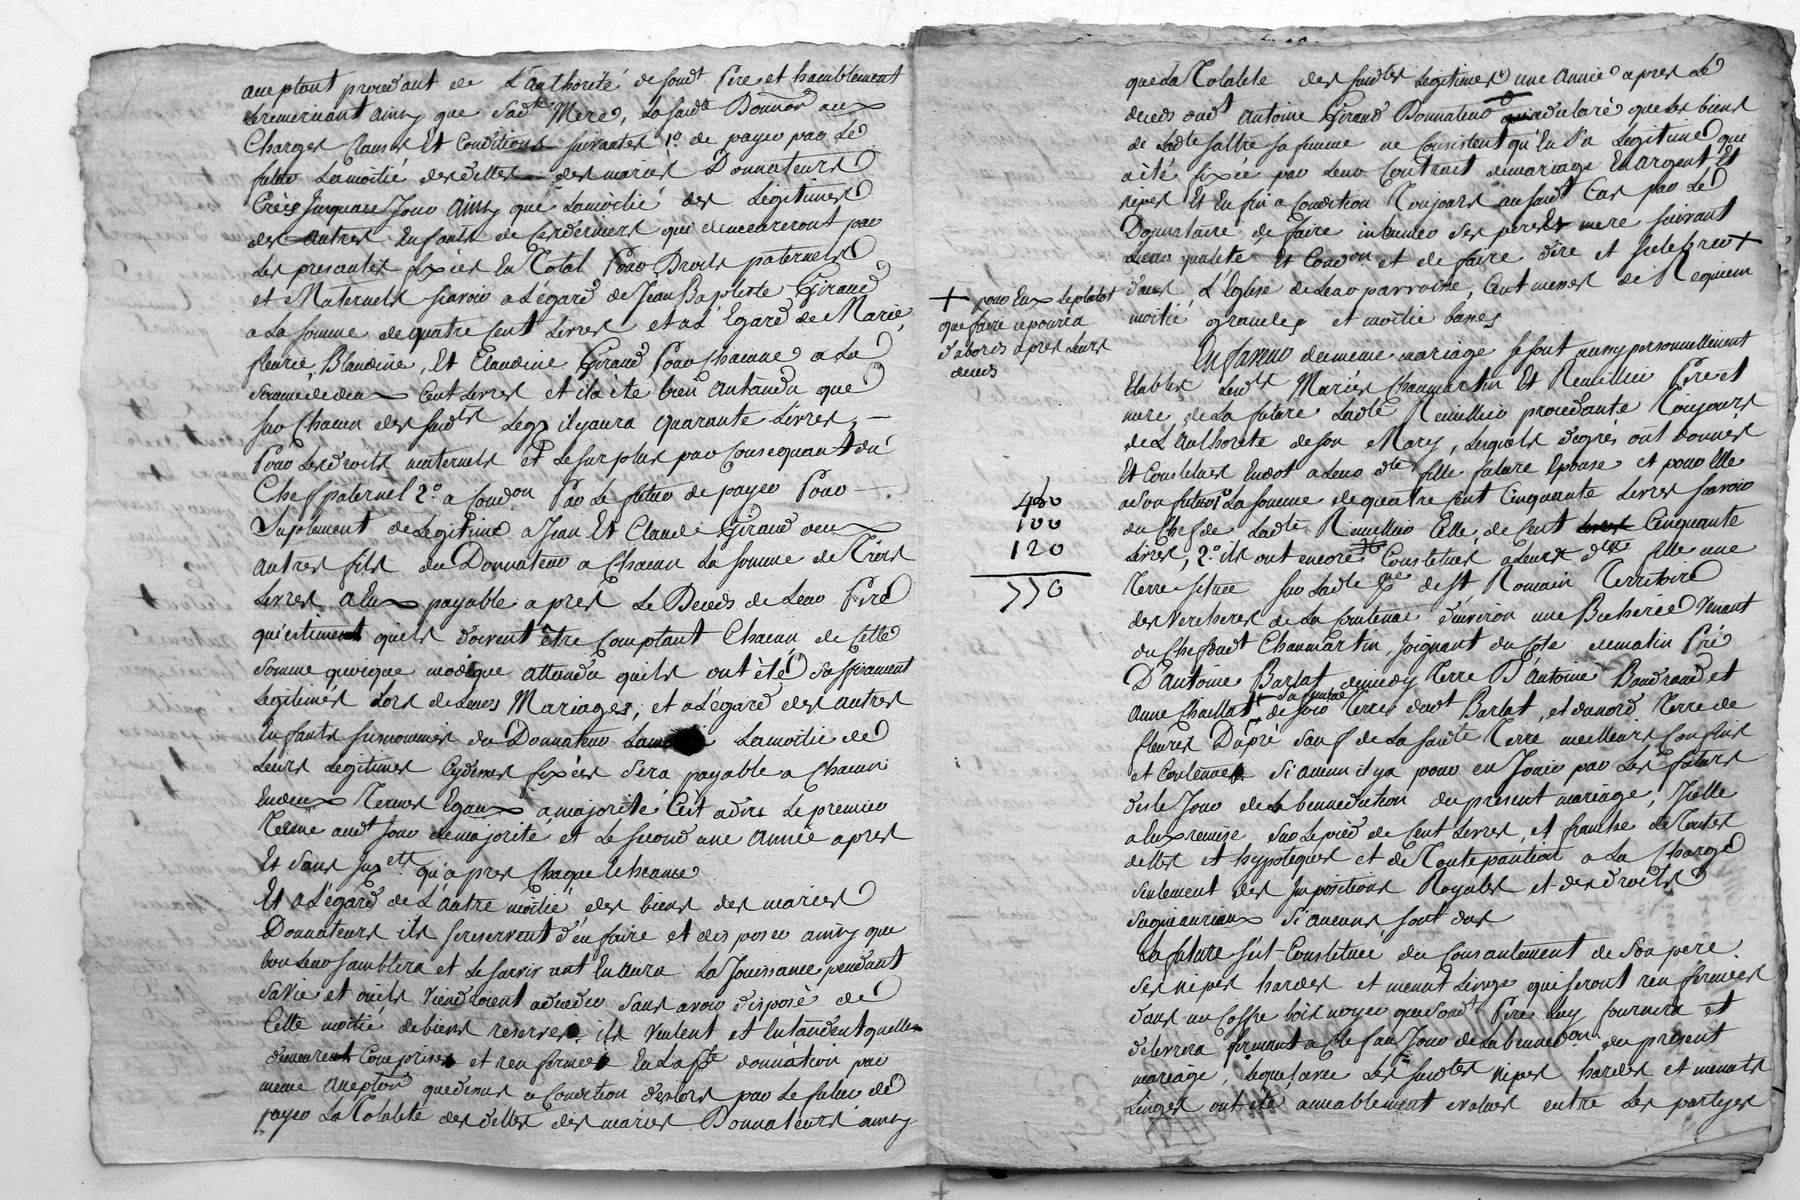 acceptant procedant de L'authorité de sondt Pere et humblement
Le remerciant ainsy que Sadte Mere, La susdte Donnaon aux
Charges Clauses Et Conditions suivantes 1o. de payer par Le
futur La moitié des dettes des mariés Donnateurs
Créés jusqua ce Jour ainsy que Lamoitié des Légitimes
des autres Enfants de ces derniers qui demeureront par
Les presantes fixées En Total Pour Droits paternels
et Maternels scavoir a Légard de Jean Baptiste Giraud
a La somme de quatre Cent Livres et a L'Egard de Marie,
fleurie, Blandine, Et Claudine Giraud Pour Chacune a La
Somme de deux Cent Livres et il a été bien entandu que
sur Chacun des susdts Legs il y aura quarante Livres
Pour Les droits maternels et Le surplus par Consequant du
Chef paternel 2o. a Condon Par Le futur de payer Pour
Suplement de Legitime a Jean Et Claude Giraud deux
autres fils du Donnateur a Chacun La somme de Trois
Livres a Eux payable apres Le Deceds de Leur Pere
qui estiment quils doivent être Comptant Chacun de Cette
somme quoique modique attendu quils ont été suffisament
Legitimés Lors de Leurs Mariages, et a Légard des autres
Enfants surnommés du Donnateur La moitié de
Leurs Legitimes Cydessus fixées sera payable a Chacun
En deux Termes Egaux a majorité C'est a dire Le premier
Terme audt Jour de majorité et Le second une année apres
Et sans qu'apres Chaque Echeance
Et a Légard de L'autre moitié des biens des mariés
Donnateurs ils se reservent d'en faire et disposer ainsy que
bon Leur samblera et Le survivant En aura La Jouissance pendant
sa vie et ou ils viendroient a deceder sans avoir disposé de
Cette moitié de biens reservée ils veulent et Entandent quelle
demeurent Comprise et renfermée En La pte donnation par
meme acceptaon que dessus a Condition des lors par Le futur de
payer La Totalité des dettes des mariés Donnateurs ainsy
que La Totalité des susdtes Legitimes une année apres Le
deceds dudt Antoine Giraud Donnateur qui a declaré que Les biens
de Ladte sa femme ne Consistent qu'En Sa Legitime qui
a été fixée par Leur Contrait de mariage En argent Et
nipes Et En fin a Condition Toujours au susdt Cas par Le
Donnataire de faire inhumer ses pere et mere suivant
Leur qualité Et Condon et de faire dire et Celebrer +
dans L'Eglise de Leur parroisse, Cent messes de Requiem
moitié grandes et moitié basses
+ pour Eux Le plutot
que faire ce poura
d'abord apres Leurs
deceds
En faveur du meme mariage se sont aussy personnellement
Etablis Lesdts Mariés Chanmartin Et Remillieu Pere et
mere de La future Ladte Remillieu procedante Toujours
de L'authorité de son Mary, Lesquels de gres ont donnés
Et Constitués Endot a Leur dte fille future Epouse et pour Elle
a son futur 1o La somme de quatre Cent Cinquante Livres scavoir
du Chef de Ladte Remillieu Celle de Cent Cinquante
Livres, 2o. ils ont encore Constitués a Leur dte fille une
Terre située sur Ladte de St Romain Territoire
des Vercheres de La Contenue d'environ une Bicherée Venant
du Chef dudt Chanmartin, Joignant du Coté de matin Pré
D'antoine Barlat demidy Terre D'antoine Baudrand et
Anne Chaillat sa femme de soir Terre dudt Barlat, et du nord Terre de
fleurie Dupré sauf de La susdte Terre meilleurs Confins
et Contenue Si aucun il y a pour en Jouir par Les futurs
des le Jour de La bennediction du present mariage, Icelle
a Eux remise sur Le pied de Cent Livres, et franche de Toutes
dettes et hypoteques et de Toute pantion a La Charge
seulement des Impositions Royales et des droits
Seigneuriaux Si aucuns sont dus
La future s'est Constituée du Consantement de son pere
Ses nipes hardes et menut Linge qui seront renfermées
dans un Coffre bois noyer que sondt Pere Luy fournira et
delivrera fermant a Clef au Jour de La bennedon du present
mariage, Lequel avec Les susdtes nipes hardes et menuts
Linges ont été amiablement evalués entre Les partyes
450
100
120
770